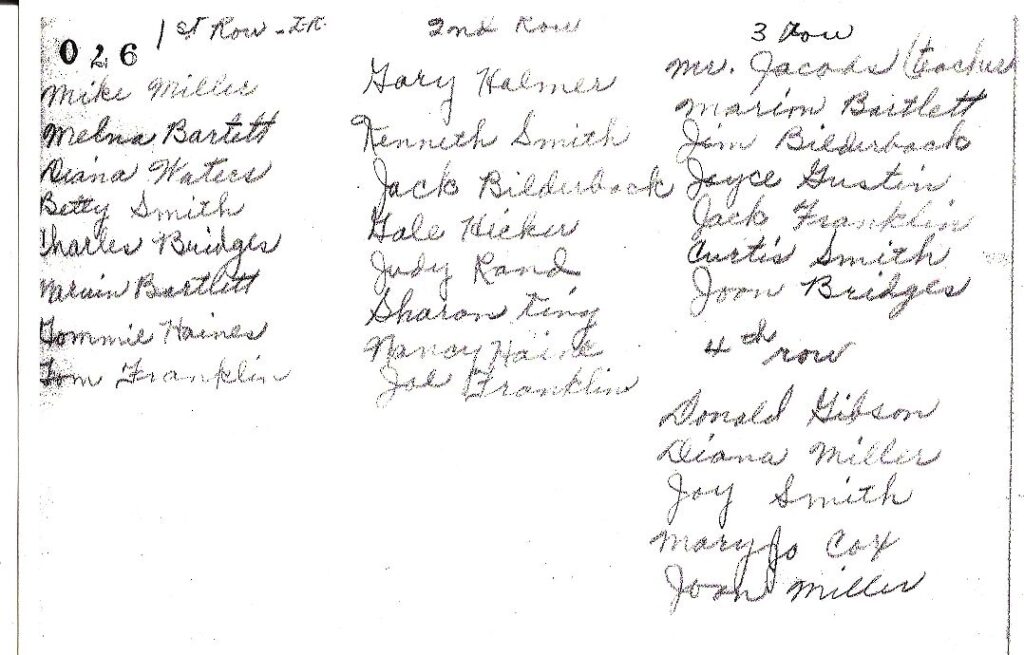 026
1st Row - L.R.
Mike Miller
Melna Bartett
Diana Waters
Betty Smith
Charles Bridges
Marvin Bartlett
Tommie Haines
Tom Franklin
2nd Row
Gary Halmer
Kenneth Smith
Jack Bilderback
Gale Hicker
Judy Rand
Sharon Ting
Nancy Haine
Joe Franklin
3 Row
Mr. Jacobs (teacher
Marion Bartlett
Jim Bilderback
Joyce Gustin
Jack Franklin
Curtis Smith
Joan Bridges
4th row
Donald Gibson
Diana Miller
Joy Smith
Mary Jo Cox
Joan Miller